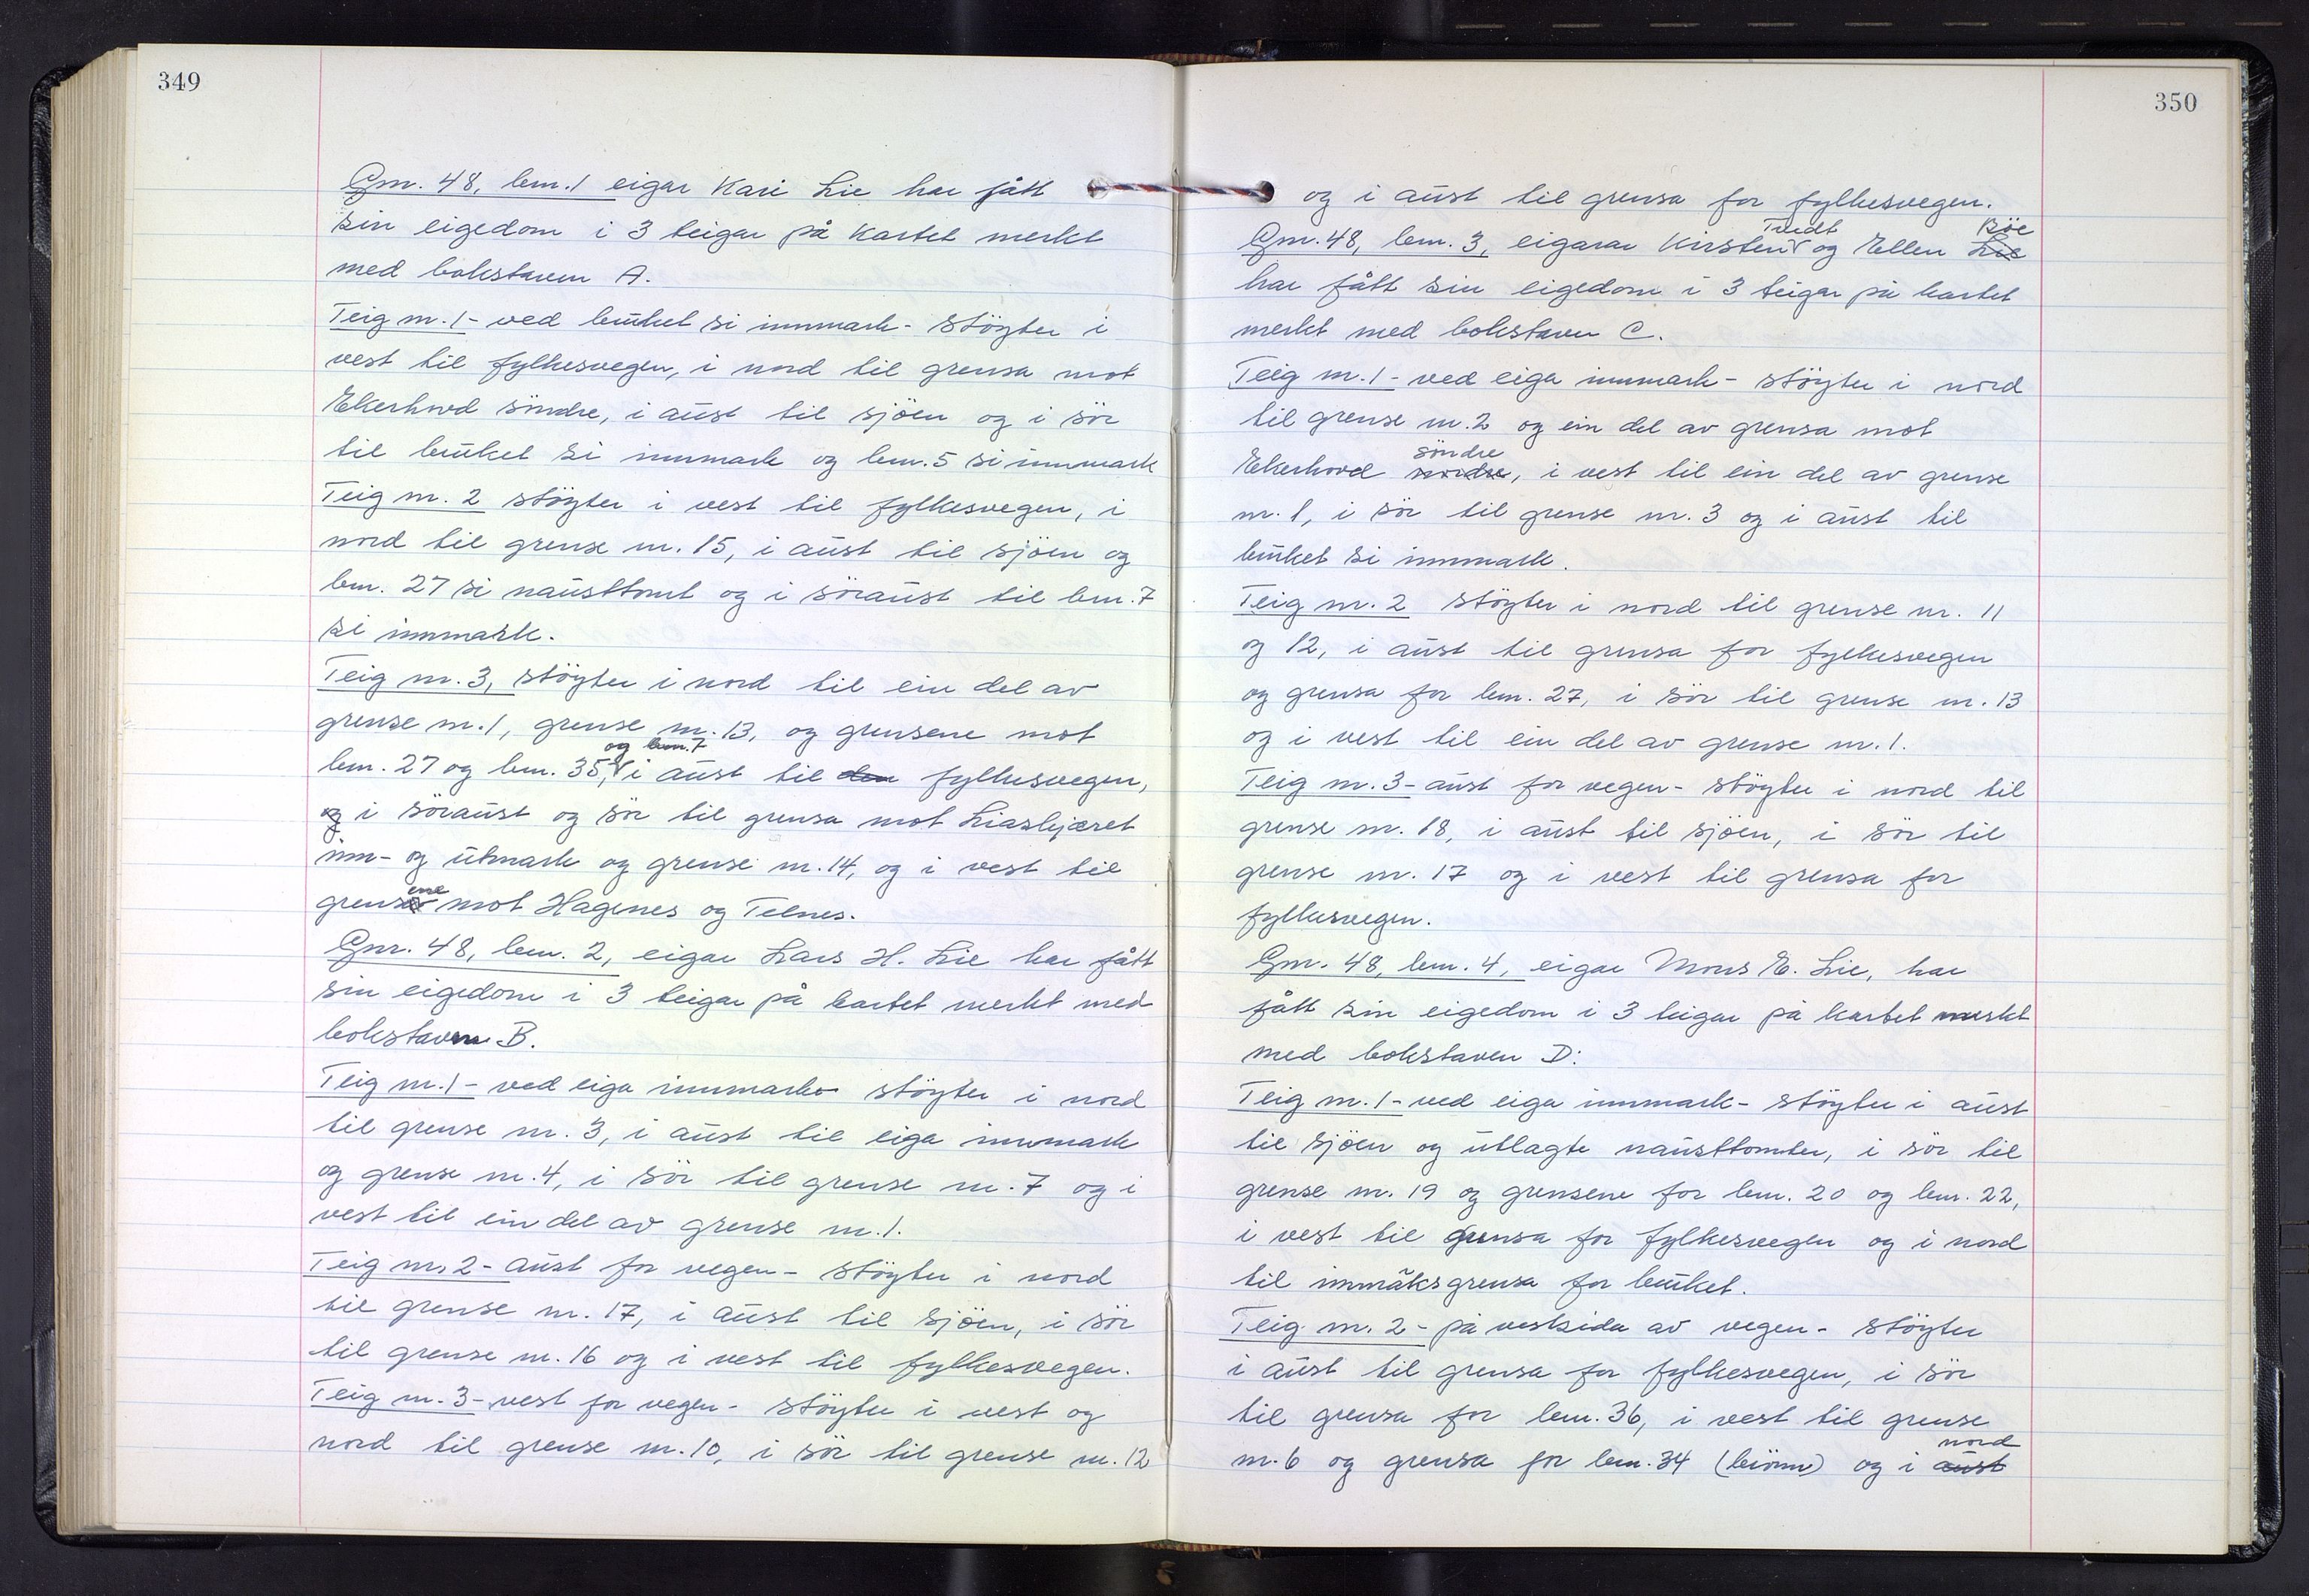 349
Gnr. 48, bnr. 1 eigar Kari Lie har fått
sin eigedom i 3 teigar på kartet merkt
med bokstaven A.
Teig nr. 1 - ved bruket si innmark - støyter i
vest til fylkesvegen, i nord til grensa mot
Ekerhovd søndre, i aust til sjøen og i sør
til bruket si innmark og bnr. 5 si innmark
Teig nr. 2 støyter i vest til fylkesvegen, i
nord til grense nr. 15, i aust til sjøen og
bnr. 27 si nausttomt og i søraust til bnr. 7
si innmark.
Teig nr. 3, støyter i nord til ein del av
grense nr. 1, grense nr. 13, og grensene mot
og bnr. 7
bnr. 27 og bnr. 35, i aust til den fylkesvegen,
og i søraust og sør til grensa mot Liaskjæret
inn- og utmark og grense nr. 14, og i vest til
grensene mot Hagenes og Telnes.
Gnr. 48, bnr. 2, eigar Lars H. Lie har fått
sin eigedom i 3 teigar på kartet merkt med
bokstaven B.
Teig nr. 1 - ved eiga innmark - støyter i nord
til grense nr. 3, i aust til eiga innmark
og grense nr. 4, i sør til grense nr. 7 og i
vest til ein del av grense nr. 1.
Teig nr. 2 - aust for vegen - støyter i nord
til grense nr. 17, i aust til sjøen, i sør
til grense nr. 16 og i vest til fylkesvegen.
Teig nr. 3 - vest for vegen - støyter i vest og
nord til grense nr. 10, i sør til grense nr. 12
350
og i aust til grensa for fylkesvegen.
Tvedt Böe
Gnr. 48, bnr. 3, eigarar Kirsten og Ellen Lie
har fått sin eigedom i 3 teigar på kartet
merkt med bokstaven C.
Teig nr. 1 - ved eiga innmark - støyter i nord
til grense nr. 2 og ein del av grensa mot
søndre
Ekerhovd nordre, i vest til ein del av grense
nr. 1, i sør til grense nr. 3 og i aust til
bruket si innmark.
Teig nr. 2 støyter i nord til grense nr. 11
og 12, i aust til grensa for fylkesvegen
og grensa for bnr. 27, i sør til grense nr. 13
og i vest til ein del av grense nr. 1.
Teig nr. 3 - aust for vegen - støyter i nord til
grense nr. 18, i aust til sjøen, i sør til
grense nr. 17 og i vest til grensa for
fylkesvegen.
Gnr. 48, bnr. 4, eigar Mons E. Lie, har
fått sin eigedom i 3 teigar på kartet merkt
med bokstaven D:
Teig nr. 1 - ved eiga innmark - støyter i aust
til sjøen og utlagte nausttomter, i sør til
grense nr. 19 og grensene for bnr. 20 og bnr. 22,
i vest til grensa for fylkesvegen og i nord
til innmåksgrensa for bruket.
Teig nr. 2 - på vestsida av vegen - støyter
i aust til grensa for fylkesvegen, i sør
til grensa for bnr. 36, i vest til grense
nord
nr. 6 og grensa for bnr. 34 (brönn) og i aust